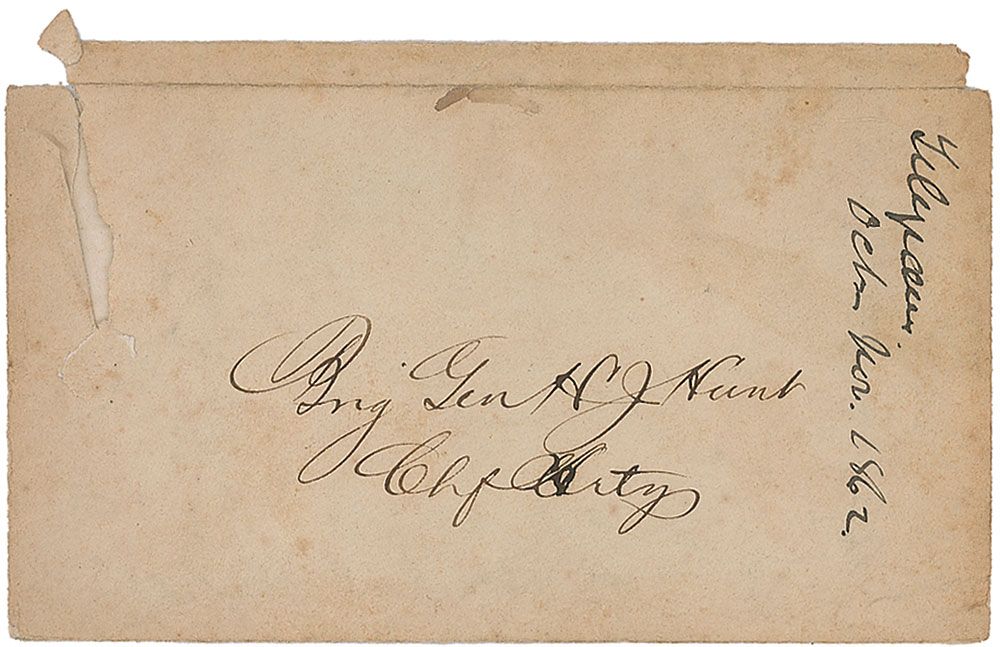 Brig Gen H J Hunt
Chf Arty
Telegrams
Oct. Nov. 1862.